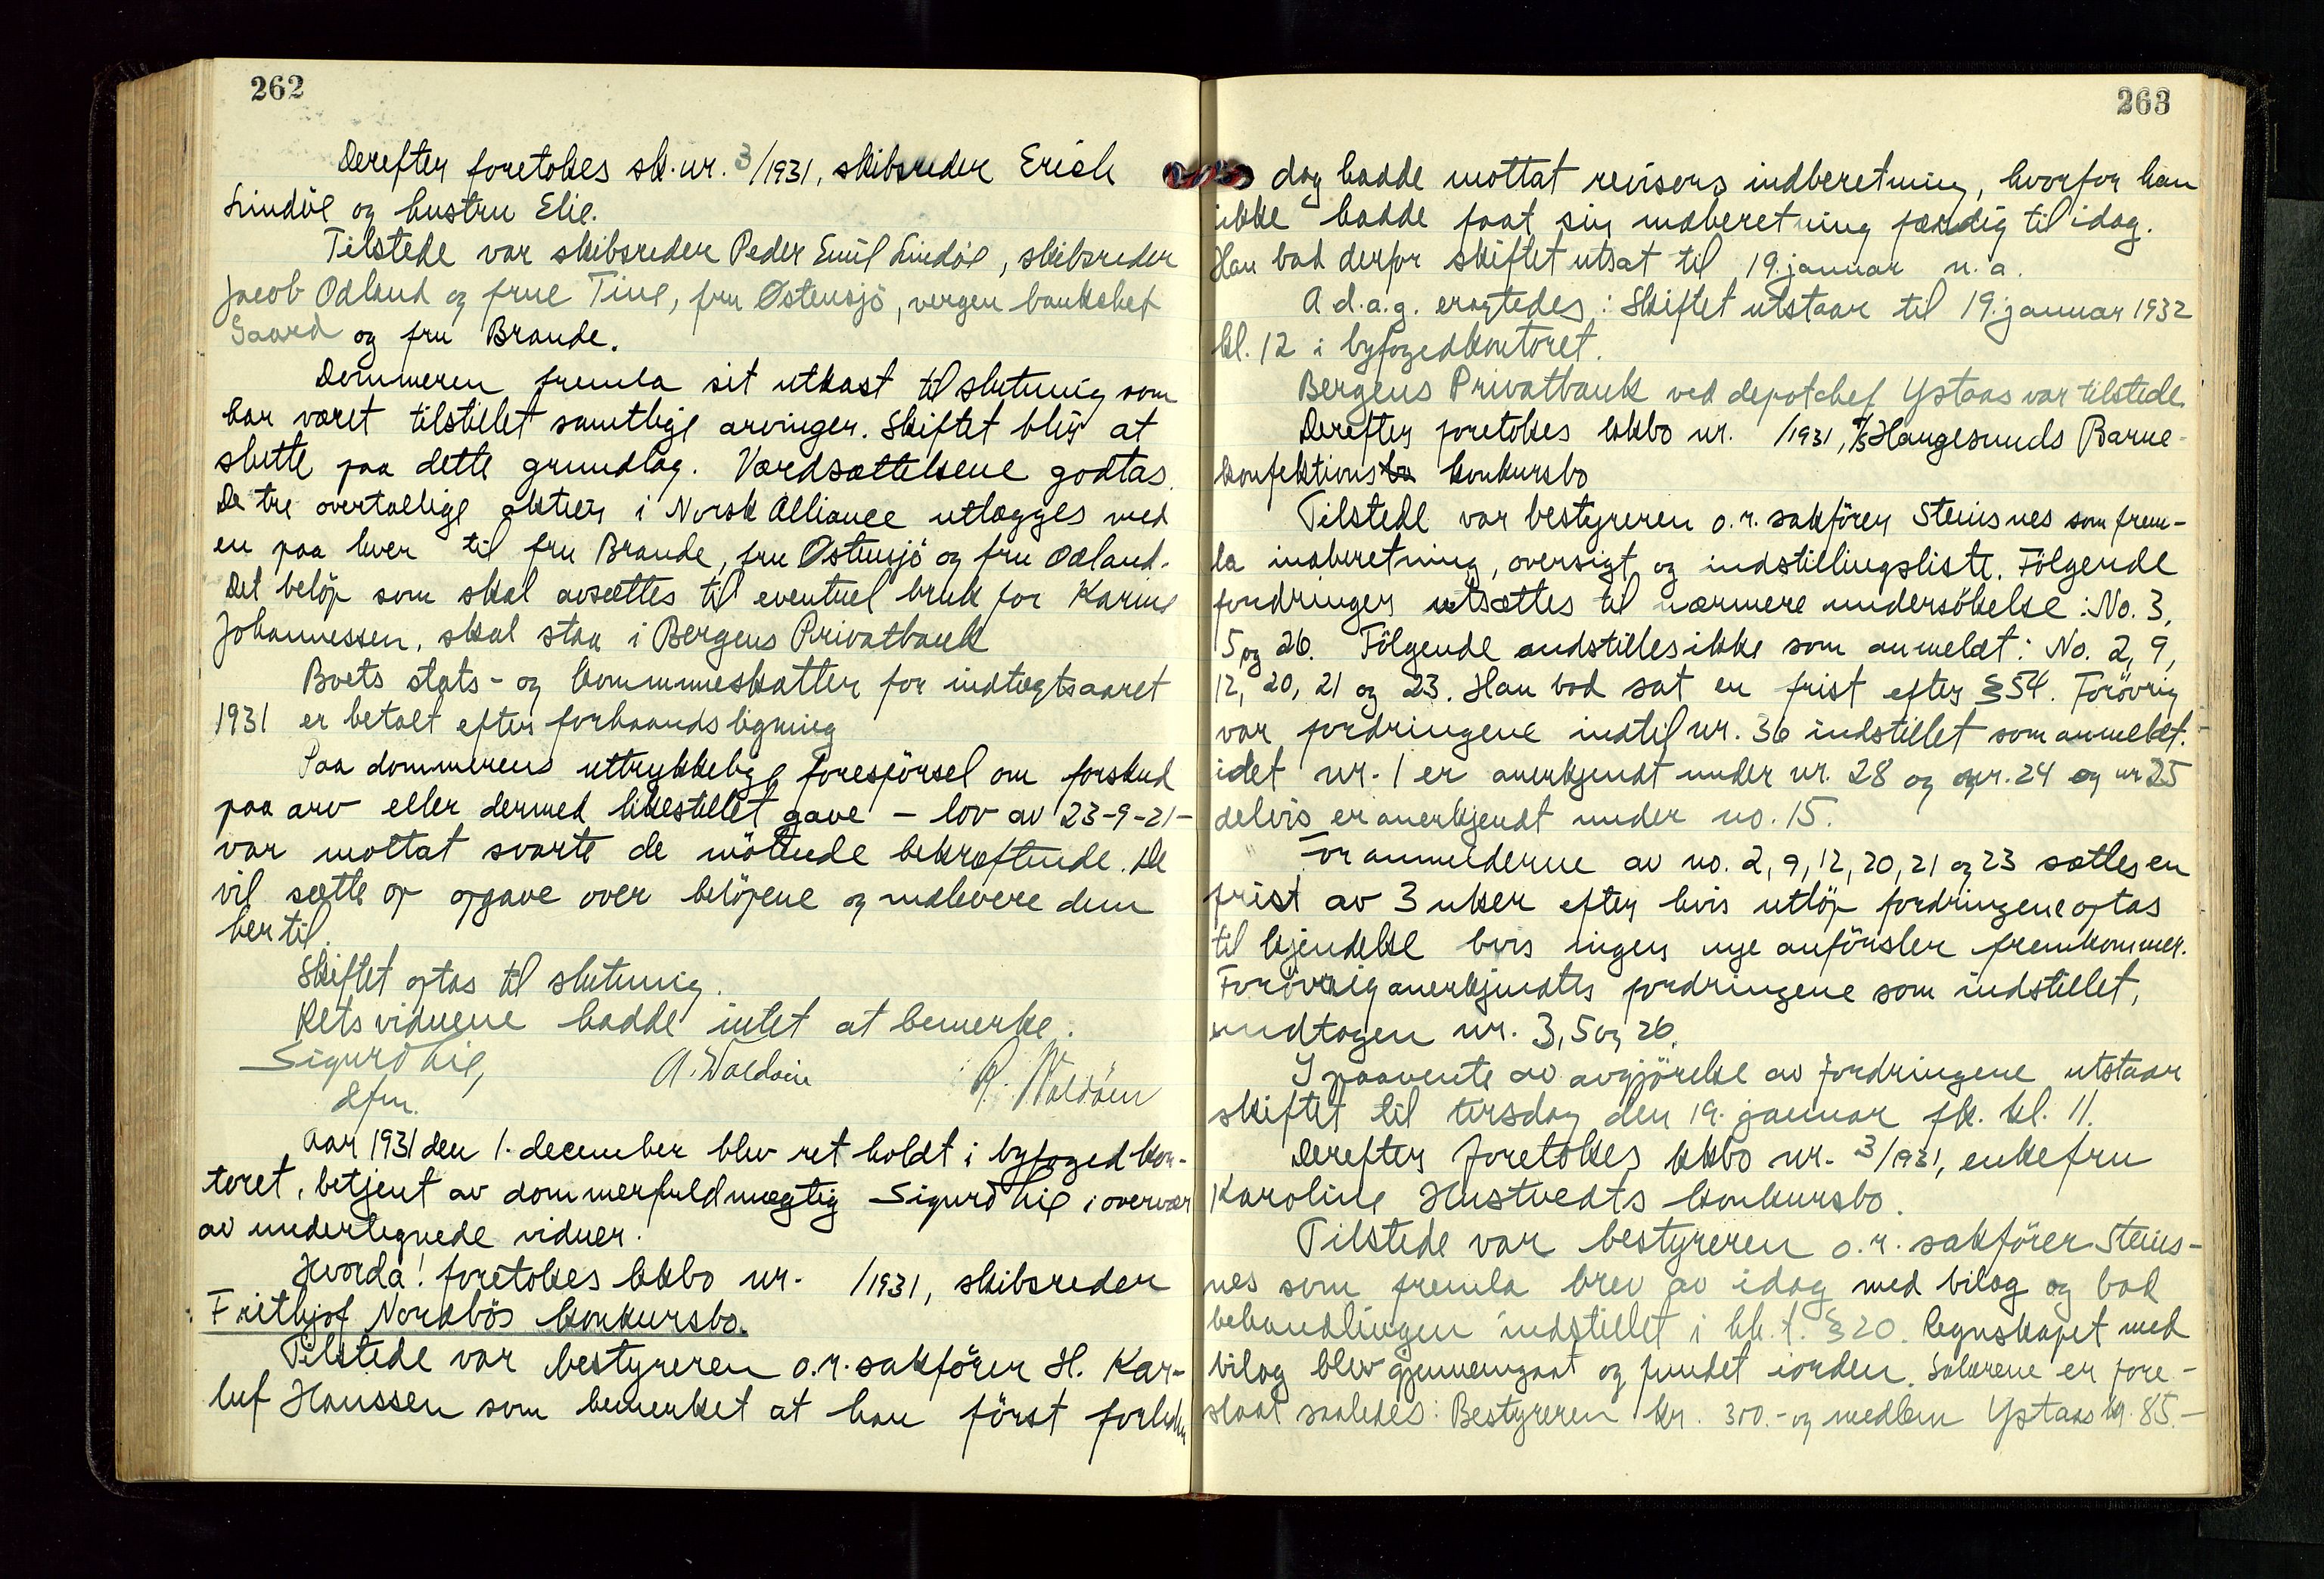 262
Derefter foretokes sk. nr. 3/1931, skibsreder Erich
Lindøe og hustru Elie.
Tilstede var skibsreder Peder Emil Lindøe, skibsreder
Jacob Odland og frue Tine, fru Østensjö, vergen bankchef
Gaard og fru Brande.
Dommeren fremla sit utkast til slutning som
har været tilstillet samtlige arvinger. Skiftet blir at
slutte paa dette grundlag. Værdsættelsene godtas.
De tre overtallige aktier i Norsk Alliance utlægges med
en paa hver til fru Brande, fru Østensjö og fru Odland.
Det belöp som skal avsættes til eventuel bruk for Karine
Johannessen, skal staa i Bergens Privatbank
Boets stats- og kommuneskatter for indtægtsaaret
1931 er betalt efter forhaandsligning
Paa dommerens uttrykkelige forespörsel om forskud
paa arv eller dermed likestillet gave - lov av 23-9-21-
var mottat svarte de mötende bekræftende. De
vil sætte op opgave over belöpene og indlevere dem
hertil.
Skiftet optas til slutning.
Retsvidnene hadde intet at bemerke.
Sigurd Lie, A. Waldein R. Waldåen
dfm.
Aar 1931 den 1. december blev ret holdt i byfogedkon-
toret, betjent av dommerfuldmægtig Sigurd Lie i overvær
av undertegnede vidner.
Hvorda! foretokes kkbo nr. /1931, skibsreder
Frithjof Nordbös konkursbo.
Tilstede var bestyreren o.r. sakförer H. Kar-
luf Hanssen som bemerket at han först forleden
263
dag hadde mottat revisors indberetning, hvorfor han
ikke hadde faat sin indberetning færdig til idag.
Han bad derfor skiftet utsat til 19. januar n.a.
A d.a.g. eragtedes: Skiftet utstaar til 19. januar 1932
kl. 12 i byfogedkontoret.
Bergens Privatbank ved depotchef Ystaas var tilstede.
Derefter foretokes kkbo nr. /1931, A/S Haugesunds Barne-
konfektions konkursbo
Tilstede var bestyreren o.r. sakförer Steinsnes som frem-
la indberetning, oversigt og indstillingsliste. Fölgende
fordringer utsættes til nærmere undersökelse: No. 3,
5 og 26. Fölgende indstilles ikke som anmeldt: No. 2, 9,
12, 20, 21 og 23. Han bad sat en frist efter § 54. Forövrig
var fordringene indtil nr. 36 indstillet som anmeldt.
idet nr. 1 er anerkjendt under nr. 28 og nr. 24 og nr 25
delvis er anerkjendt under no. 15.
For anmelderne av no. 2, 9, 12, 20, 21 og 23 sættes en
frist av 3 uker efter hvis utlöp fordringene optas
til kjendelse hvis ingen nye anförsler fremkommer.
Forövrig anerkjendtes fordringene som indstillet,
undtagen nr. 3, 5 og 26.
I paavente av avgjörelse av fordringene utstaar
skiftet til tirsdag den 19. januar fk. kl. 11.
Derefter foretokes kkbo nr. 3/1931, enkefru
Karoline Hustvedts konkursbo.
Tilstede var bestyreren o.r. sakförer Steins-
nes som fremla brev av idag med bilag og bad
behandlingen indstillet i h.t. § 20. Regnskapet med
bilag blev gjennemgaat og fundet iorden. Salærene er fore-
slaat saaledes: Bestyreren kr. 300.- og medlem Ystaas kr. 85.-